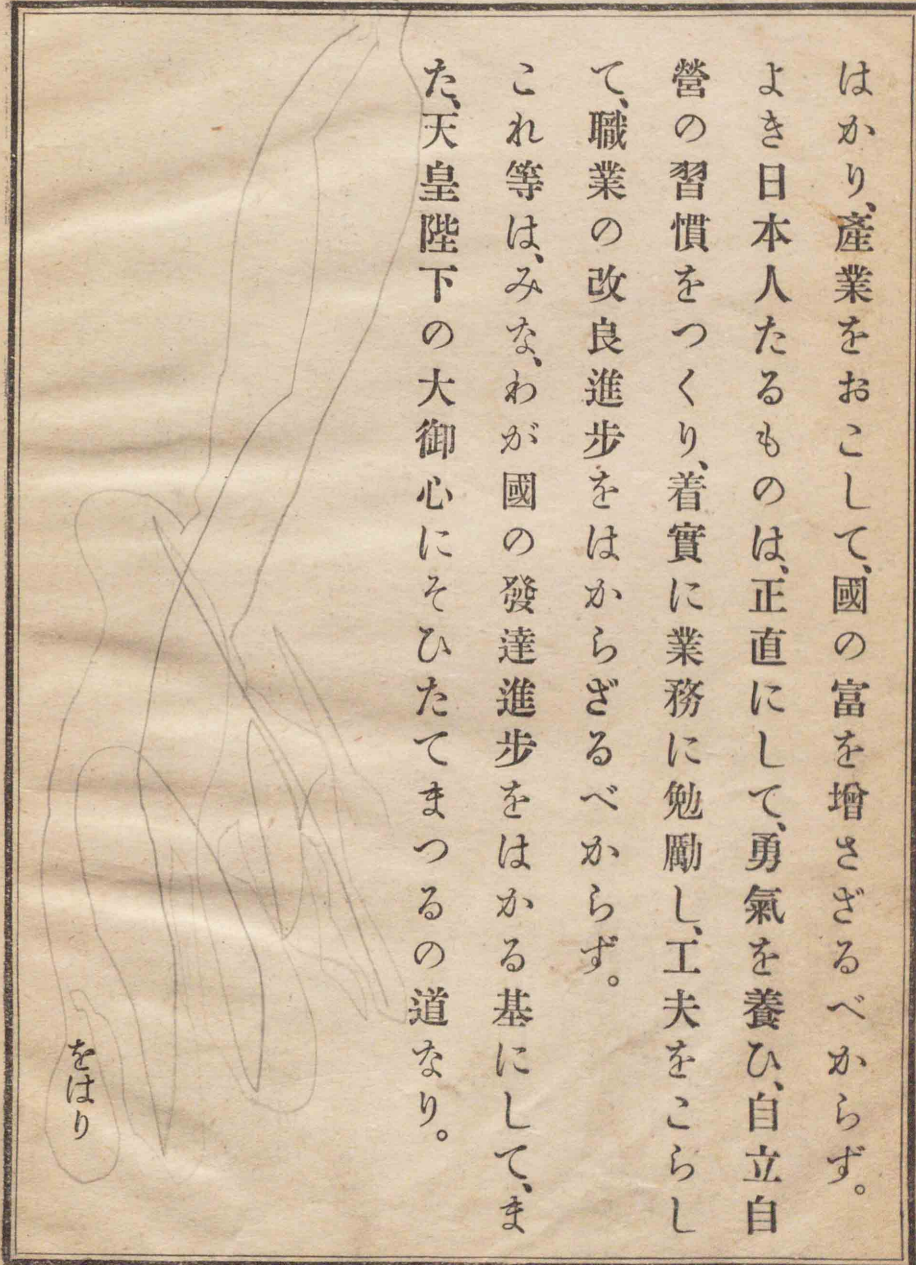 はかり、產業をおこして、國の富を增さざるべからず。
よき日本人たるものは、正直にして、勇氣を養ひ、自立自
營の習慣をつくり、着實に業務に勉勵し、工夫をこらし
て、職業の改良進步をはからざるべからず。
これ等は、みな、わが國の發達進步をはかる基にして、ま
た、天皇陛下の大御心にそひたてまつるの道なり。
をはり